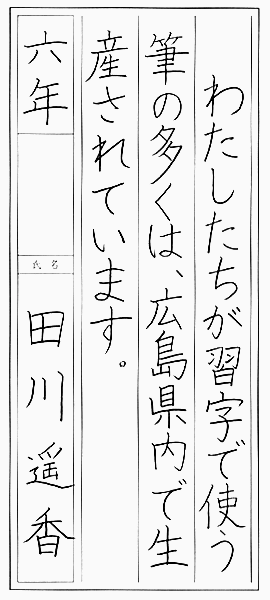 わたしたちが習字で使う
筆の多くは、広島県内で生
産されています。
六年
氏名
田川遥香